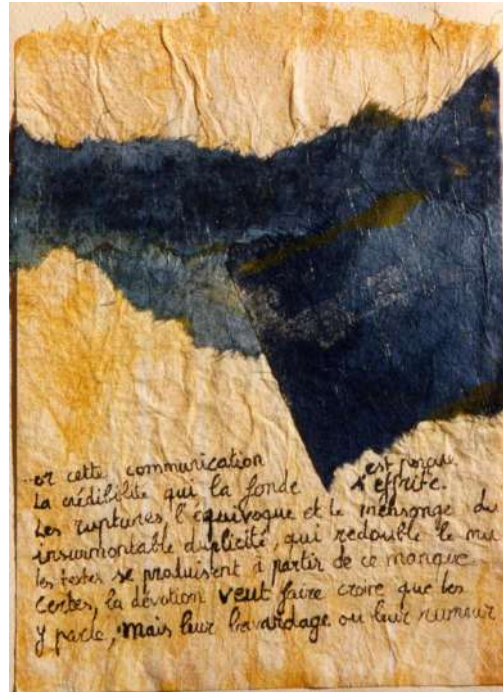 ...or cette communication est perçue
La crédibilité qui la fonde s'effrite.
Les ruptures, l'équivoque et le mensonge du
insurmontable duplicité, qui redouble le mu
les textes se produisent à partir de ce manque
certes, la dévotion veut faire croire que les
y parle, mais leur bavardage ou leur rumeur